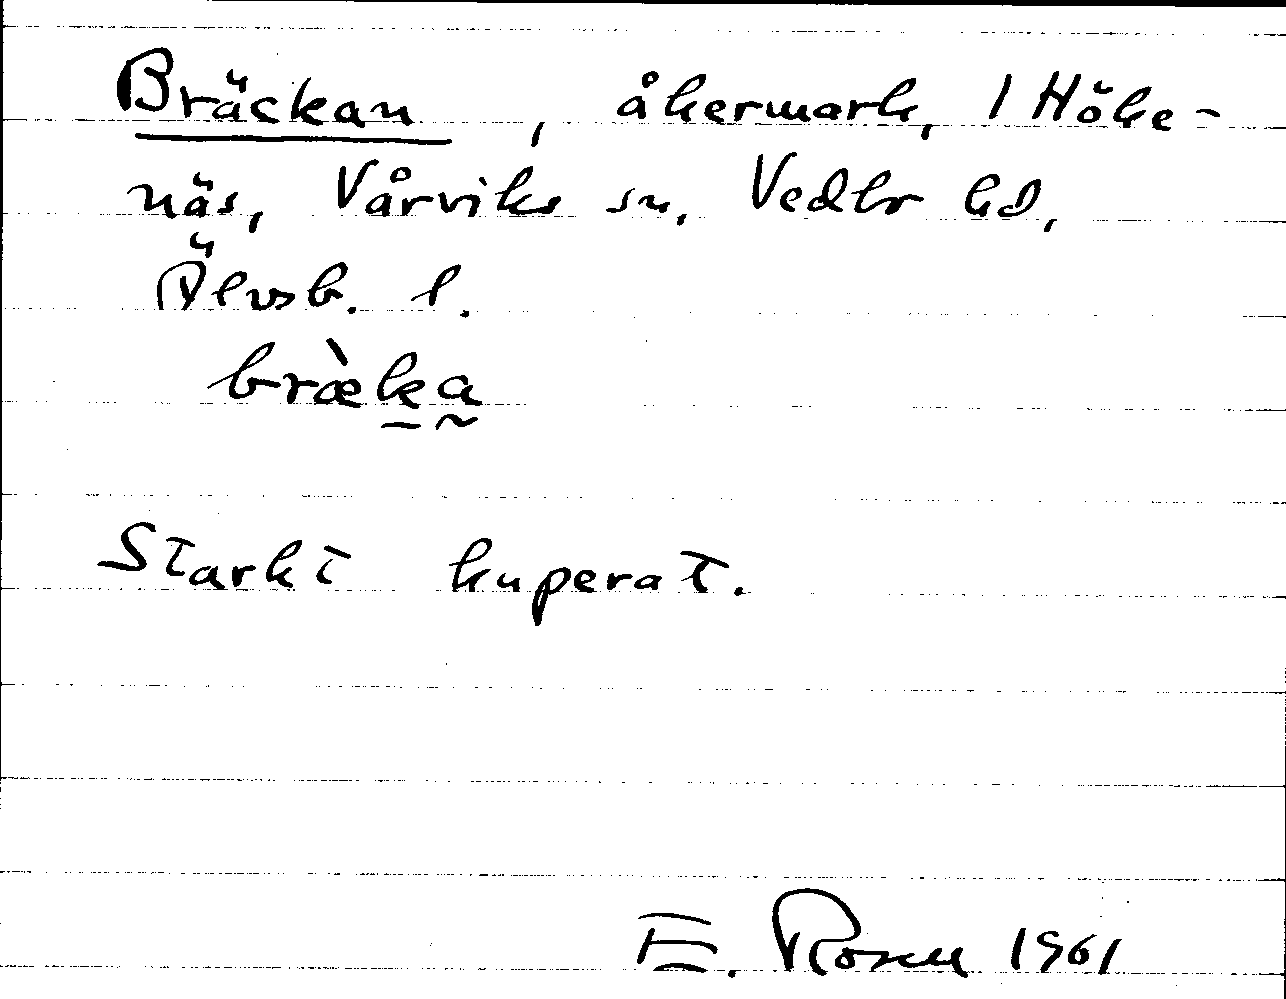 Bräckan, åkermark, 1 Höke-
näs, Vårviks sn, Vedbo hd,
Älvsb. l.
bræ̀ka
Starkt kuperat.
E. Rosell 1961